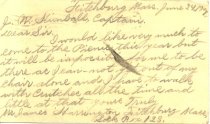 Fitchburg Mass, June 24
J. W. Kimball Captain.
Dear Sir,
I would like very much to
come to the Picnic this year but
it will be impossible for me to be
there as I can not go out of my
chair alone and I have to walk
with crutches all the time and
little at that. yours Truly,
James H. Fitchburg Mass,
Box 123.